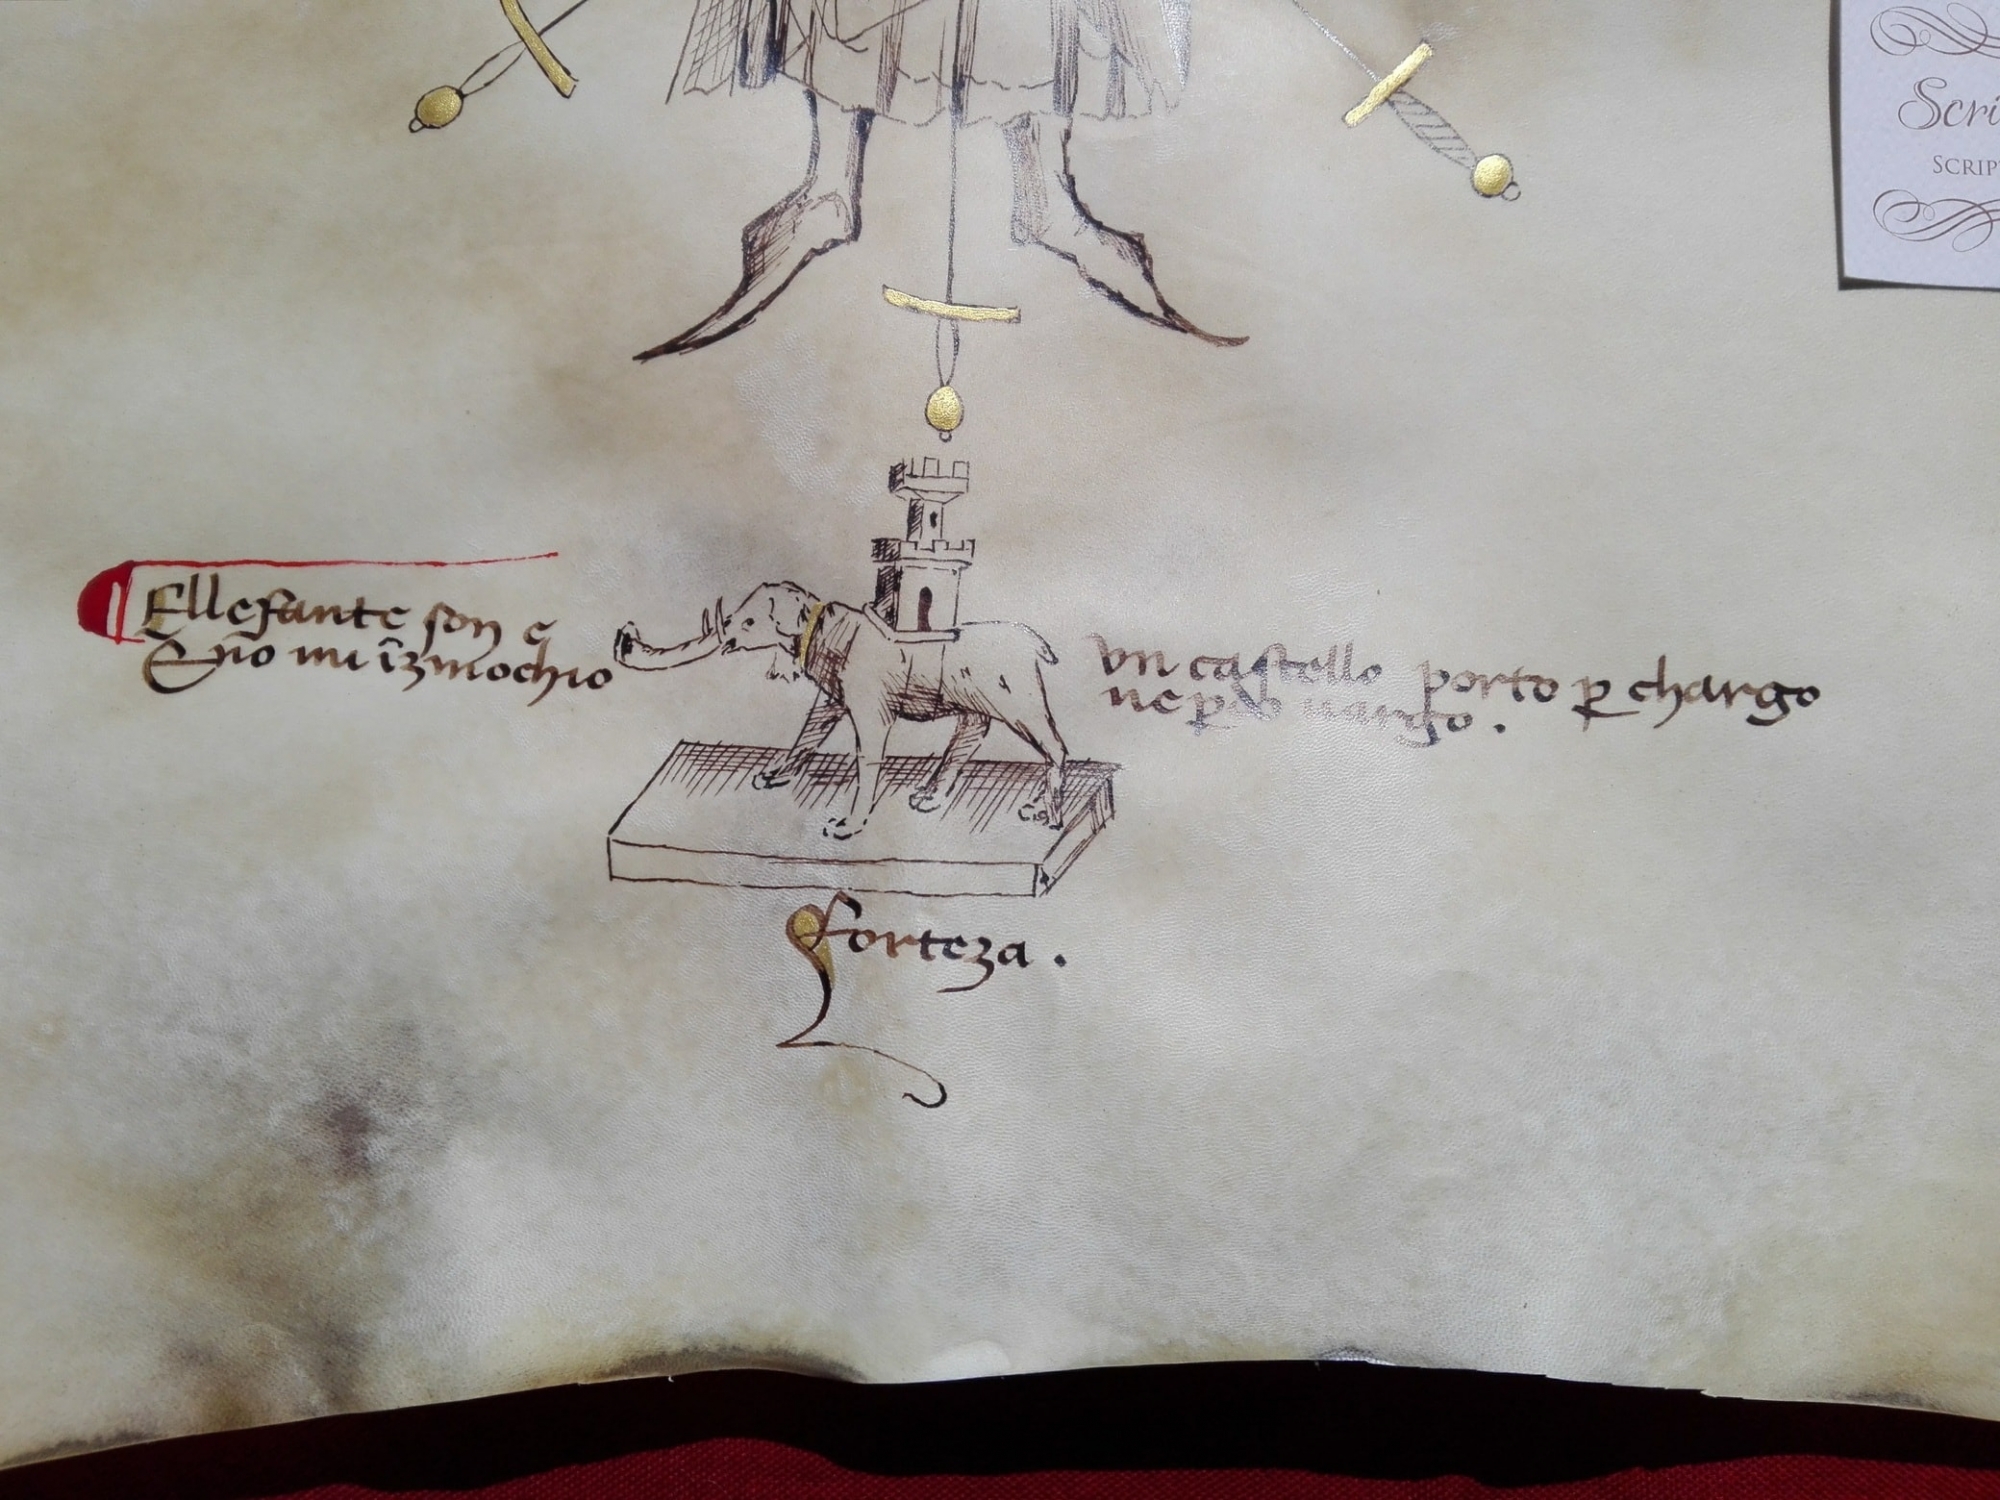 Scri
SCRIP
Ellefante son ę
E nō mi īzinochio
vn castello porto p chargo
ne p do vargo .
forteza .